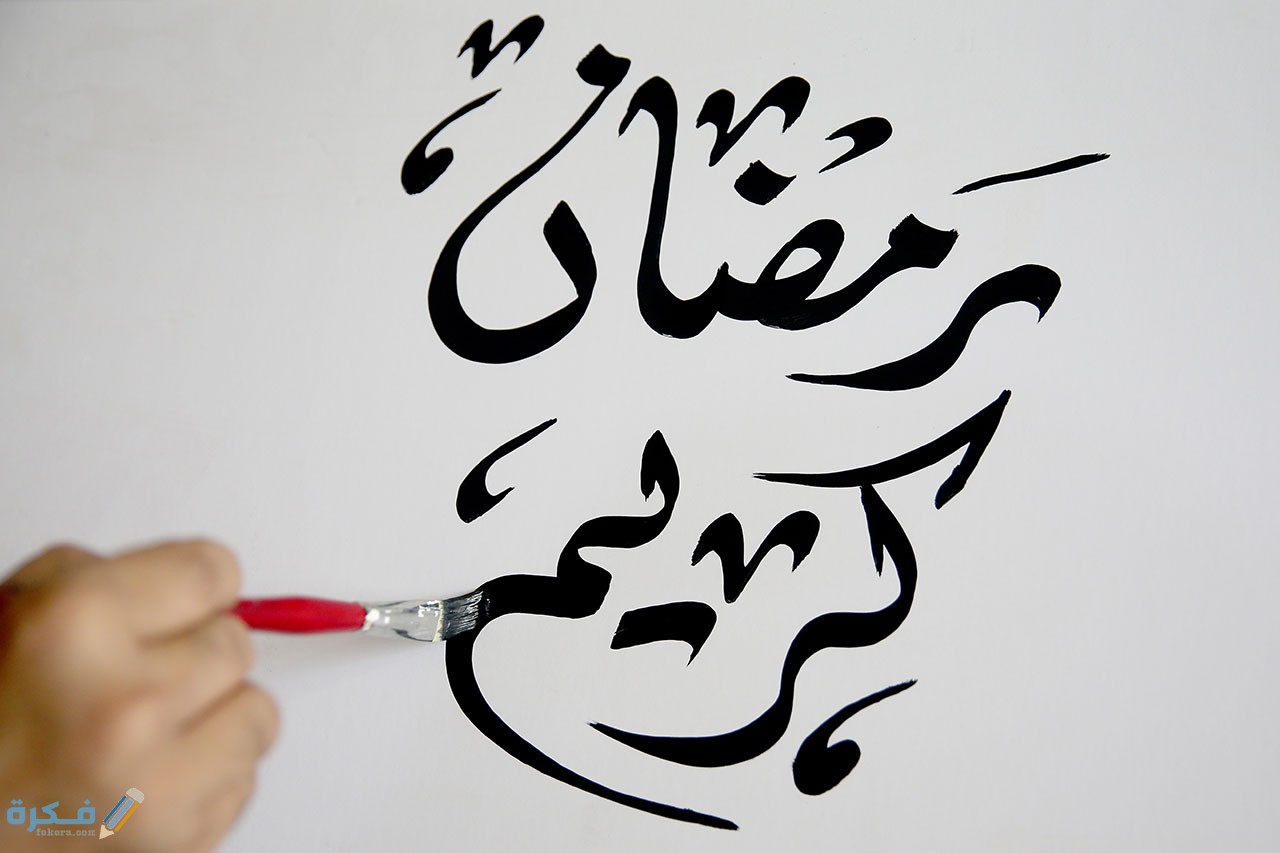 رمضان
كريم
فكرة
fokera.com